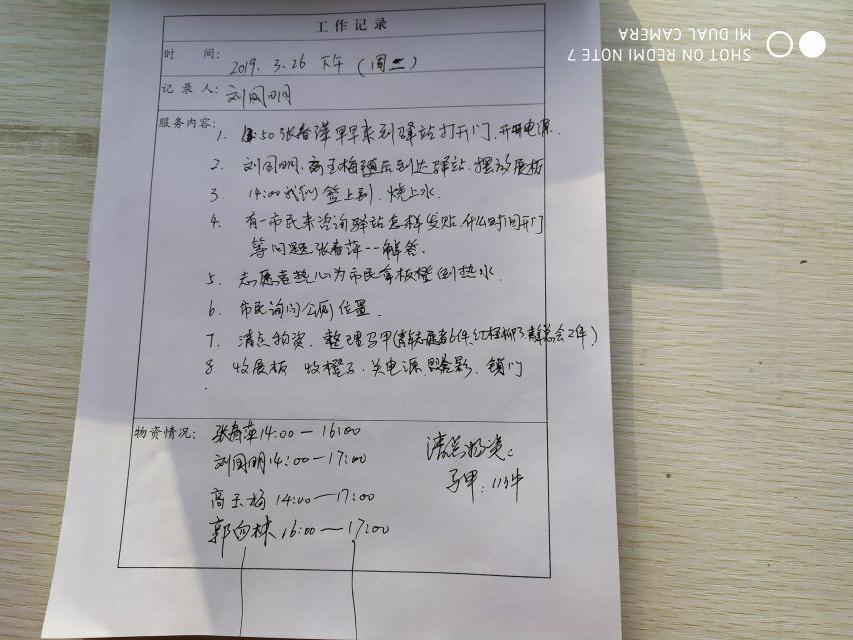 工作记录
时 间: 2019. 3. 26 下午 (周二)
记 录 人: 刘国明
服务内容: 1. 50 张春萍早早来到驿站打开门,开开电源.
2. 刘国明、高玉梅随后到达驿站.摆放展板
3. 14:00我们签上到.烧上水.
4. 有一市民来咨询驿站怎样发贴.什么时间开门
等问题张春萍一一解答.
5. 志愿者热心为市民拿板凳倒热水.
6. 市民询问公厕位置.
7. 清点物资.整理马甲(青年志愿者6件.红 3 总会2件)
8 收展板 收橙子.关电源. 锁门
物资情况: 张春萍14:00—16:00
刘国明14:00—17:00
高玉梅 14:00—17:00
郭向林 16:00—17:00
清点物资:
马甲: 11件
SHOT ON REDMI NOTE 7
MI DUAL CAMERA